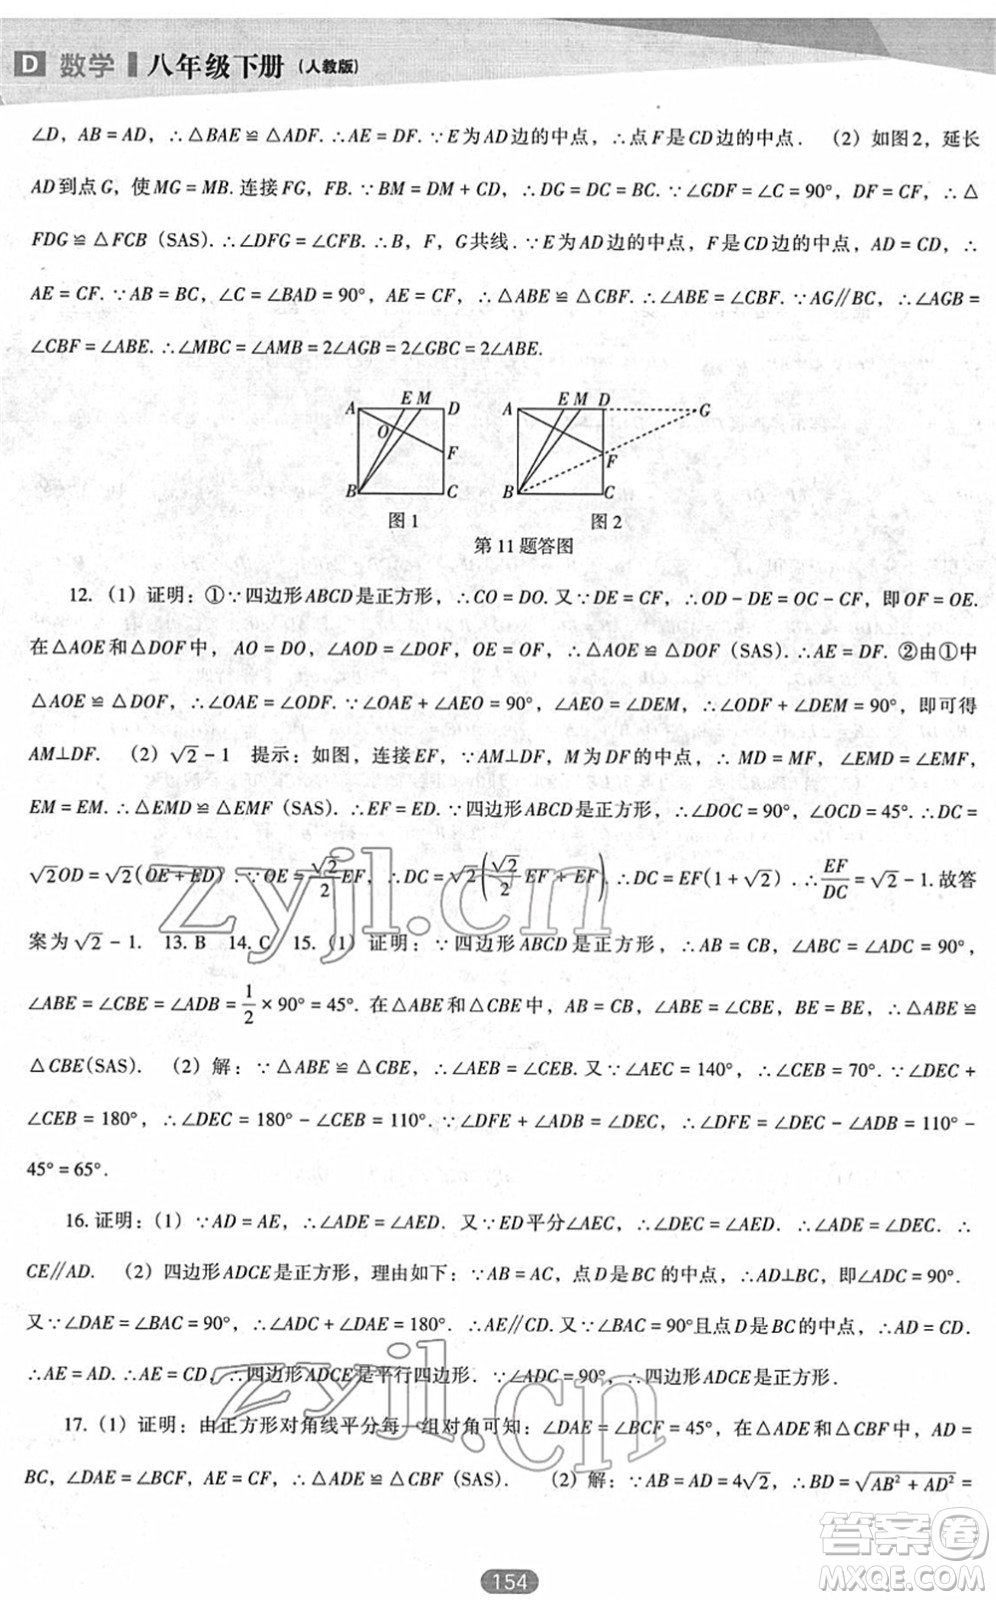 D 数学 八年级下册（人教版）
∠D，AB = AD，∴△BAE ≌ △ADF. ∴AE = DF. ∵E为AD边的中点，∴点F是CD边的中点. （2）如图2，延长
AD到点G，使MG = MB. 连接FG，FB. ∵BM = DM + CD，∴DG = DC = BC. ∵∠GDF = ∠C = 90°，DF = CF，∴△
FDG ≌ △FCB（SAS）. ∴∠DFG = ∠CFB. ∴B，F，G共线. ∵E为AD边的中点，F是CD边的中点，AD = CD，∴
AE = CF. ∵AB = BC，∠C = ∠BAD = 90°，AE = CF，∴△ABE ≌ △CBF. ∴∠ABE = ∠CBF. ∵AG∥BC，∴∠AGB =
∠CBF = ∠ABE. ∴∠MBC = ∠AMB = 2∠AGB = 2∠GBC = 2∠ABE.
A E M D O F B C
A E M D G F B C
图1 图2
第11题答图
12. （1）证明：①∵四边形ABCD是正方形，∴CO = DO. 又∵DE = CF，∴OD - DE = OC - CF，即OF = OE.
在△AOE和△DOF中，AO = DO，∠AOD = ∠DOF，OE = OF，∴△AOE ≌ △DOF（SAS）. ∴AE = DF. ②由①中
△AOE ≌ △DOF，∴∠OAE = ∠ODF. ∵∠OAE + ∠AEO = 90°，∠AEO = ∠DEM，∴∠ODF + ∠DEM = 90°，即可得
AM⊥DF. （2）√2 - 1 提示：如图，连接EF，∵AM⊥DF，M为DF的中点，∴MD = MF，∠EMD = ∠EMF，
EM = EM. ∴△EMD ≌ △EMF（SAS）. ∴EF = ED. ∵四边形ABCD是正方形，∴∠DOC = 90°，∠OCD = 45°. ∴DC =
√2OD = √2(OE + ED). ∵OE = √2/2 EF，∴DC = √2(√2/2 EF + EF). ∴DC = EF(1 + √2). ∴EF/DC = √2 - 1. 故答
案为√2 - 1. 13. B 14. C 15.（1）证明：∵四边形ABCD是正方形，∴AB = CB，∠ABC = ∠ADC = 90°，
∠ABE = ∠CBE = ∠ADB = 1/2 × 90° = 45°. 在△ABE和△CBE中，AB = CB，∠ABE = ∠CBE，BE = BE，∴△ABE ≌
△CBE(SAS). （2）解：∵△ABE ≌ △CBE，∴∠AEB = ∠CEB. 又∵∠AEC = 140°，∴∠CEB = 70°. ∵∠DEC +
∠CEB = 180°，∴∠DEC = 180° - ∠CEB = 110°. ∵∠DFE + ∠ADB = ∠DEC，∴∠DFE = ∠DEC - ∠ADB = 110° -
45° = 65°.
16. 证明：（1）∵AD = AE，∴∠ADE = ∠AED. 又∵ED平分∠AEC，∴∠DEC = ∠AED. ∴∠ADE = ∠DEC. ∴
CE∥AD. （2）四边形ADCE是正方形，理由如下：∵AB = AC，点D是BC的中点，∴AD⊥BC，即∠ADC = 90°.
又∵∠DAE = ∠BAC = 90°，∴∠ADC + ∠DAE = 180°. ∴AE∥CD. 又∵∠BAC = 90°且点D是BC的中点，∴AD = CD.
∴AE = AD. ∴AE = CD，∴四边形ADCE是平行四边形. ∵∠ADC = 90°，∴四边形ADCE是正方形.
17.（1）证明：由正方形对角线平分每一组对角可知：∠DAE = ∠BCF = 45°，在△ADE和△CBF中，AD =
BC，∠DAE = ∠BCF，AE = CF，∴△ADE ≌ △CBF（SAS）. （2）解：∵AB = AD = 4√2，∴BD = √(AB² + AD²) =
154
zyjl.cn
zyjl.cn
答案卷
MXQE.COM